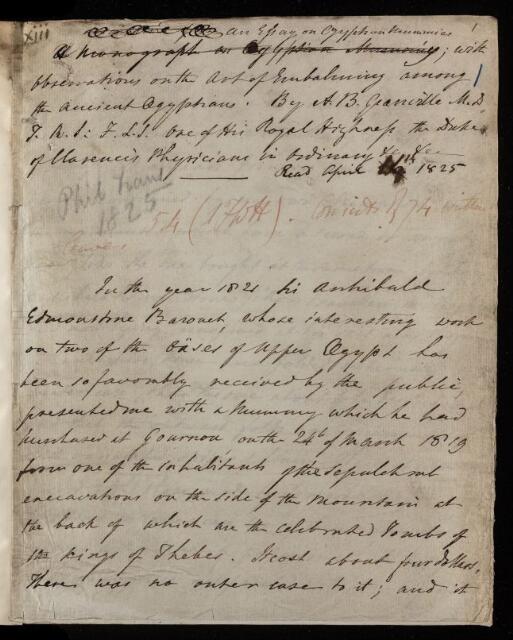 xiii
an Essay on Egyptian Mummies 1
A Monograph on Egyptian Mummies; with
observations on the Art of Embalming among
the ancient Egyptians. By A. B. Granville M.D.
F.R.S: F.L.S. one of His Royal Highness the Duke
of Clarence's Physicians in ordinary &c &c
Read April 14th 1825
Phil Trans
1825
54 (17WH). Consists of 74 written
In the year 1821 Sir Archibald
Edmonstone Baronet, whose interesting work
on two of the Oäses of Upper Egypt has
been so favorably received by the public,
presented me with a Mummy which he had
purchased at Gournou on the 24th of March 1819
from one of the inhabitants of the sepulchral
excavations on the side of the mountain at
the back of which are the celebrated Tombs of
the Kings of Thebes. It cost about four dollars.
There was no outer case to it; and it